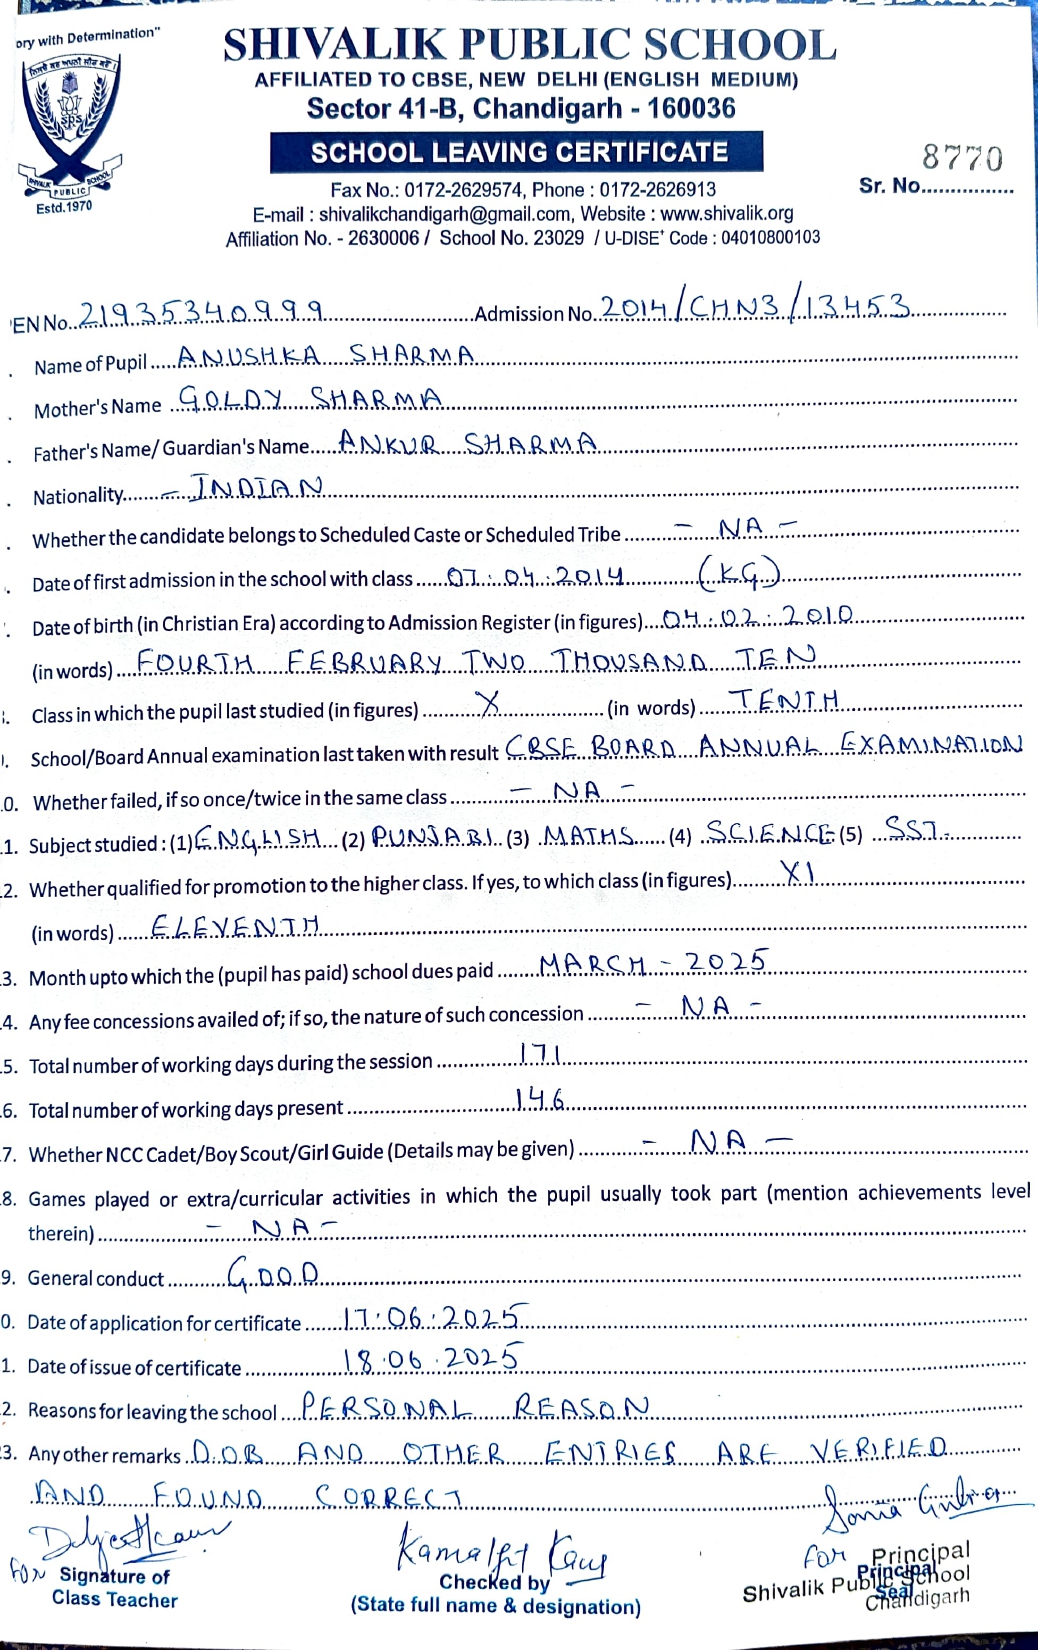 ory with Determination"
SHIVALIK PUBLIC SCHOOL
AFFILIATED TO CBSE, NEW DELHI (ENGLISH MEDIUM)
Sector 41-B, Chandigarh - 160036
SCHOOL LEAVING CERTIFICATE
8770
Sr. No................
Fax No.: 0172-2629574, Phone : 0172-2626913
E-mail : shivalikchandigarh@gmail.com, Website : www.shivalik.org
Affiliation No. - 2630006 / School No. 23029 / U-DISE+ Code : 04010800103
SPS
SHIVALIK PUBLIC SCHOOL
Estd.1970
EN No. 21935340999 Admission No. 2014/CHN3/13453
Name of Pupil ANUSHKA SHARMA
Mother's Name GOLDY SHARMA
Father's Name/ Guardian's Name ANKUR SHARMA
Nationality - INDIAN
Whether the candidate belongs to Scheduled Caste or Scheduled Tribe - NA -
Date of first admission in the school with class 07.04.2014 (KG)
Date of birth (in Christian Era) according to Admission Register (in figures) 04.02.2010
(in words) FOURTH FEBRUARY TWO THOUSAND TEN
Class in which the pupil last studied (in figures) X (in words) TENTH
School/Board Annual examination last taken with result CBSE BOARD ANNUAL EXAMINATION
0. Whether failed, if so once/twice in the same class - NA -
1. Subject studied : (1) ENGLISH (2) PUNJABI (3) MATHS (4) SCIENCE (5) SST.
2. Whether qualified for promotion to the higher class. If yes, to which class (in figures) XI
(in words) ELEVENTH
3. Month upto which the (pupil has paid) school dues paid MARCH - 2025
4. Any fee concessions availed of; if so, the nature of such concession - NA -
5. Total number of working days during the session 171
6. Total number of working days present 146
7. Whether NCC Cadet/Boy Scout/Girl Guide (Details may be given) - NA -
8. Games played or extra/curricular activities in which the pupil usually took part (mention achievements level
therein) - NA -
9. General conduct GOOD
0. Date of application for certificate 17.06.2025
1. Date of issue of certificate 18.06.2025
2. Reasons for leaving the school PERSONAL REASON
3. Any other remarks D.O.B AND OTHER ENTRIES ARE VERIFIED
AND FOUND CORRECT
Kamaljit Kaur
FOR Signature of
Class Teacher
Checked by
(State full name & designation)
FOR Principal
Principal
Shivalik Public School
Seal
Chandigarh